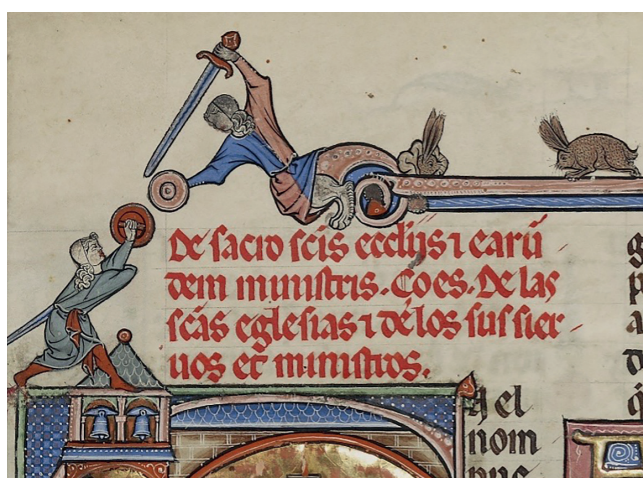 De sacro scis ecclijs ⁊ earū
dem ministris. Co es. De las
scās eglesias ⁊ de los sus sier-
uos et ministros.
el
nom